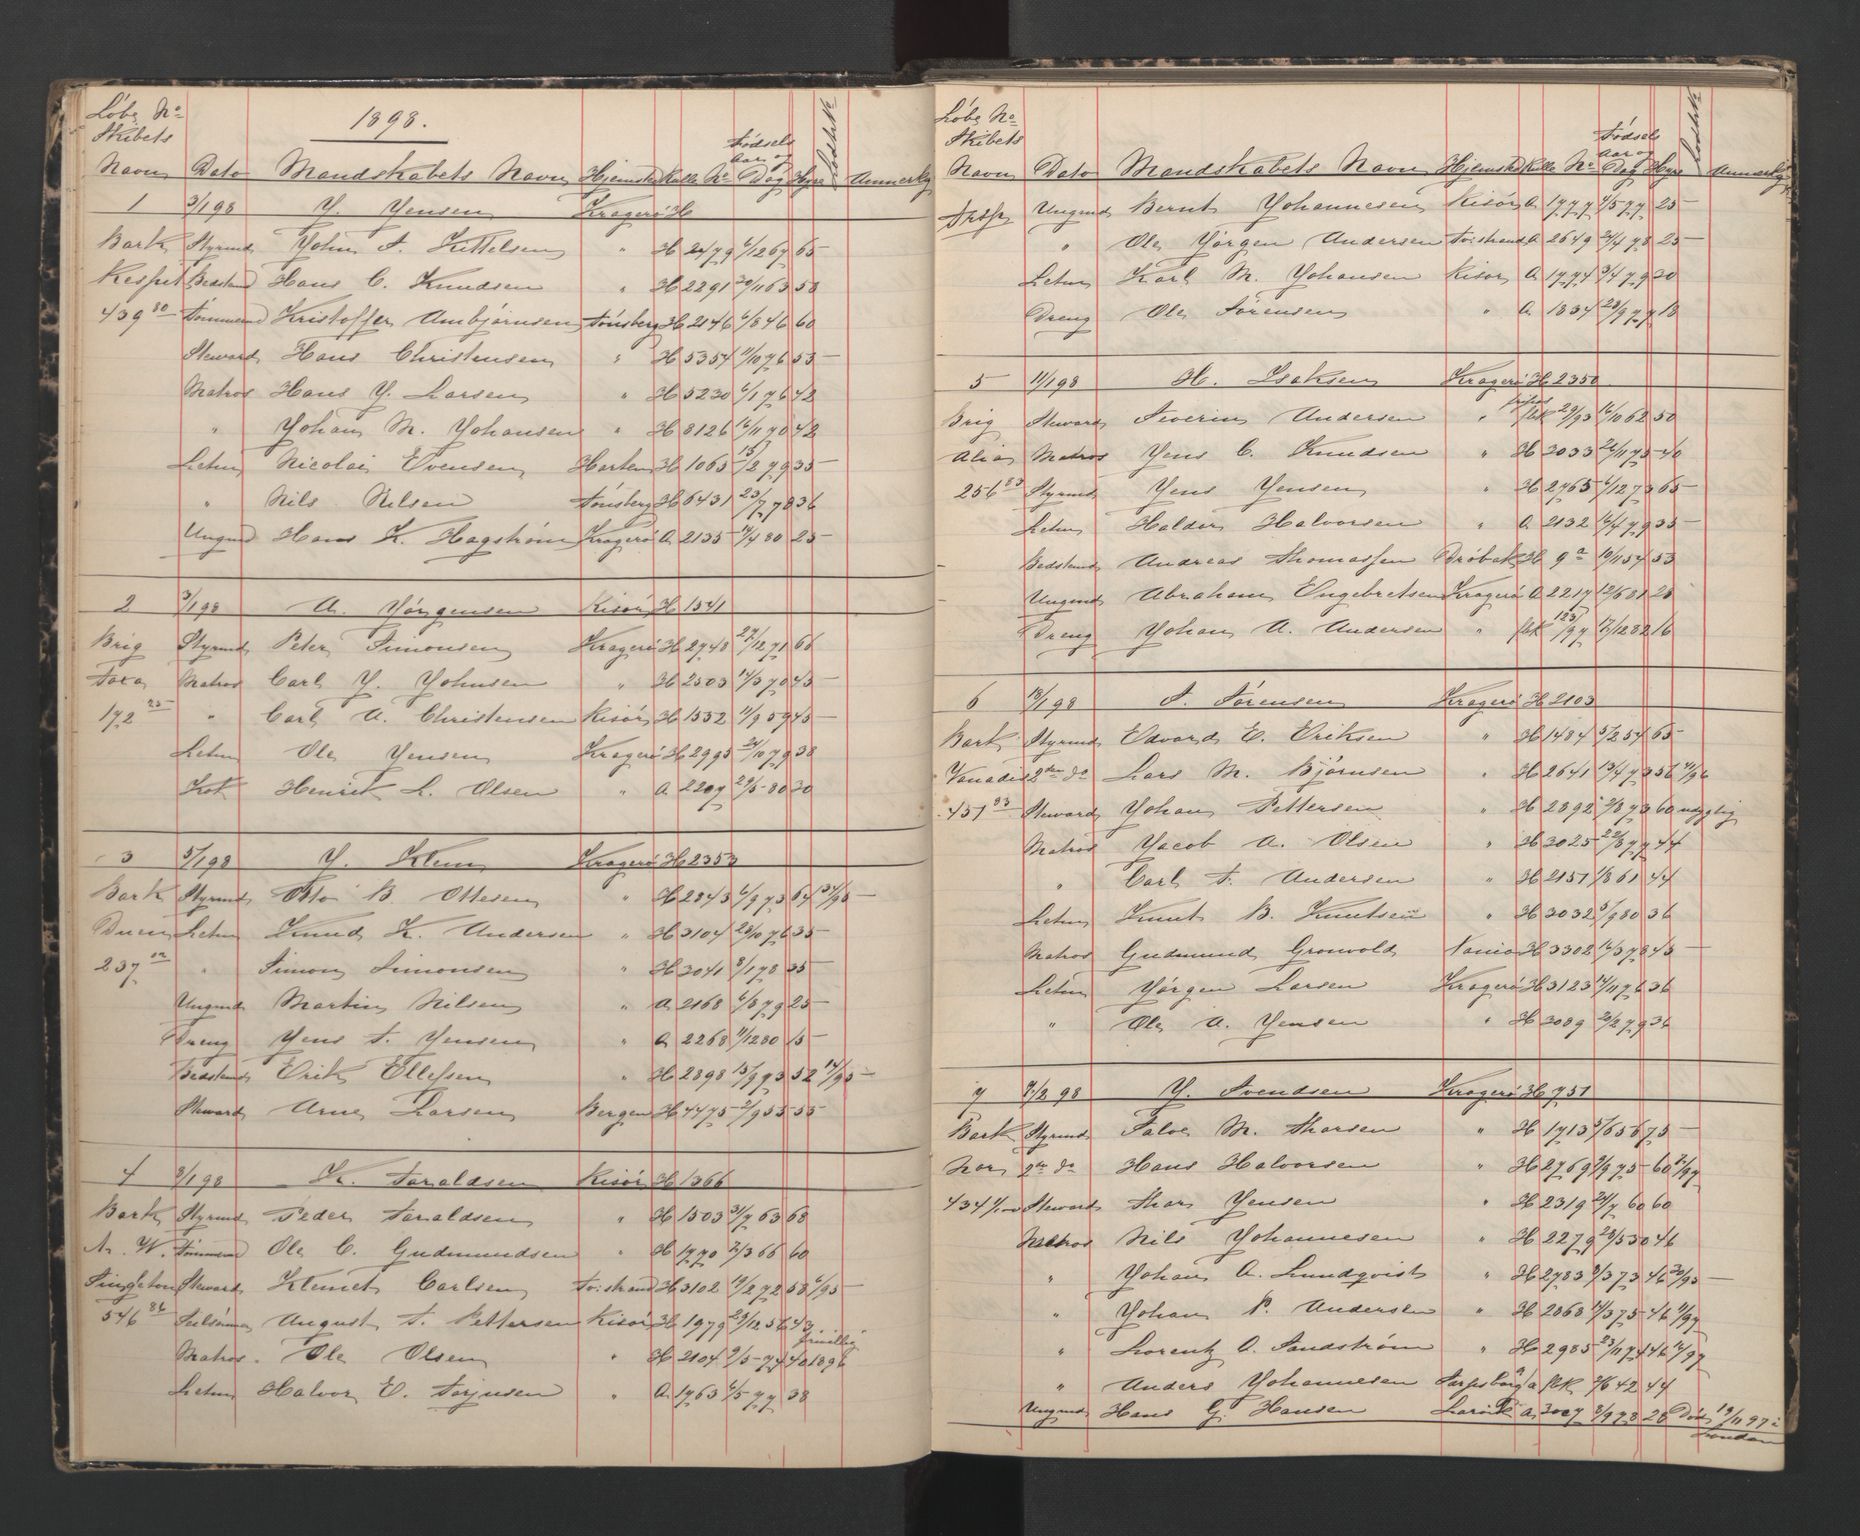 Løbe No
Skibets
1898.
Fødsels
Aar og
Navn Dato Mandskabets Navn Hjemsted Rulle No Dag Hyre Anmerkg
1 3/1 98 J. Jensen Kragerø H
Bark Styrmd John A. Kittelsen " H 2479 6/12 67 65-
Bedstmd Hans C. Knudsen " H 2291 20/11 63 58
439 80 Tømmermd Kristoffer Ambjørnsen Tønsberg H 2146 6/8 46 60
Steward Hans Christensen " H 5354 11/10 76 53-
Matros Hans J. Larsen " H 5230 6/1 76 42
" Johan M. Johansen " H 8126 16/11 70 42
Letm Nicolai Evensen Horten H 1063 13/2 79 35-
" Nils Nilsen Tønsberg H 6431 23/7 78 36
Ungmd Hans K. Hagstrøm Kragerø A 2135 14/4 80 25-
2 3/1 98 A. Jørgensen Risør H 1541
Brig Styrmd Peter Simonsen Kragerø H 2748 27/12 71 66
Matros Carl J. Johnsen " H 2503 14/3 70 45-
172 25 " Carl A. Christensen Risør H 1532 11/9 59 45-
Letm Ole Jensen Kragerø H 2995 24/10 79 38
Kok Henrik L. Olsen " A 2207 29/5 80 30
3 5/1 98 J. Klem Kragerø H 2353
Bark Styrmd Otto B. Ottesen " H 2843 6/9 73 64 24/95-
Duen Letm Knud K. Andersen " H 3104 23/10 76 35-
237 02 " Simon Simonsen " H 3041 8/1 78 35-
Ungmd Martin Nilsen " A 2168 6/8 79 25-
Dreng Jens A. Jensen " A 2268 11/12 80 15-
Bedstmd Erik Ellefsen " H 2898 15/9 73 52 14/95-
Steward Arne Larsen Bergen H 4475 2/9 55 55-
4 8/1 98 K. Taraldsen Risør H 1366
Bark Styrmd Peder Taraldsen " H 1503 31/7 63 68
A. W. Tømmermd Ole C. Gudmundsen " H 1770 7/3 66 60
Singleton Steward Klemet Carlsen Tvistrand H 3102 19/2 72 58 6/95-
546 86 Seilsømm August A. Pettersen Risør H 1979 29/12 56 43
frivillig
Matros Ole Olsen " H 2104 9/5 74 40 1896
Letm Halvor E. Torjusen " A 1763 6/5 77 38
Løbe No
Skibets
Fødsels
Aar og
Navn Dato Mandskabets Navn Hjemsted Rulle No Dag Hyre Anmerkg
Ungmd Bernt Johannesen Risør A 1777 4/5 77 25-
" Ole Jørgen Andersen Tvistrand A 2649 24/4 78 25-
Letm Karl M. Johansen Risør A 1774 3/4 79 30
Dreng Ole Sørensen " A 1834 23/9 77 18
5 11/1 98 H. Isaksen Kragerø H 2350
Brig Steward Severin Andersen " flk 29/93 16/10 62 50
Matros Jens C. Knudsen " H 3033 24/11 75 40
256 83 Styrmd Jens Jensen " H 2765 6/12 73 65-
Letm Haldor Halvorsen " A 2132 16/4 79 35-
Bedstmd Andreas Thomassen Drøbak H 9a 19/11 54 53
Ungmd Abraham Engebretsen Kragerø A 2217 12/6 81 25
Dreng Johan A. Andersen " flk 123/97 17/12 82 16
6 18/1 98 S. Sørensen Kragerø H 2103
Bark Styrmd Edvard E. Eriksen " H 1484 5/2 54 65-
Vanadis 2den do Lars M. Bjørnsen " H 2641 13/4 73 56 4/96
451 83 Steward Johan Pettersen " H 2892 2/8 73 60 udygtig
Matros Jacob A. Olsen " H 3025 22/8 77 44
" Carl A. Andersen " H 2151 1/8 61 44
Letm Knut B. Knutsen " H 3032 5/9 80 36
Matros Gudmund Gronvold H 3302 16/3 78 45-
Letm Jørgen Larsen Kragerø H 3123 14/11 76 36
" Ole A. Jensen " H 3089 20/2 79 36
7 7/2 98 J. Svendsen Kragerø H 751
Bark Styrmd Salve M. Thorsen " H 1713 5/6 56 75-
2den do Hans Halvorsen " H 2769 2/9 75 60 2/97
434 Steward Thor Jensen " H 2319 24/7 60 60
Matros Nils Johannesen " H 2279 28/5 50 46
" Johan A. Lundqvist " H 2783 8/3 73 46 30/95-
" Johan P. Andersen " H 2868 14/3 75 46 9/97
" Lorentz O. Sandstrøm " H 2985 23/11 74 46 12/97
" Anders Johannesen Sarpsborg a flk 2/6 42 44
Ungmd Hans G. Hansen Larvik A 3027 8/9 78 28 Død 19/11 97 i
London